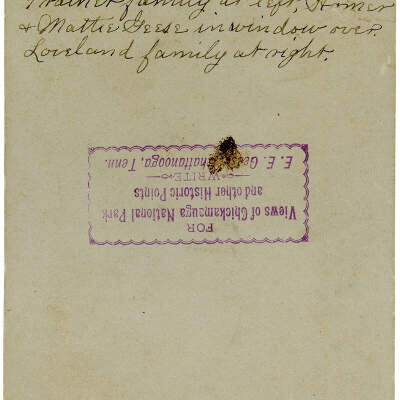 family at left. Homer
& Mattie Geese in window over.
Loveland family at right.
FOR
Views of Chickamauga National Park
and other Historic Points
WRITE
E. E. Chattanooga, Tenn.